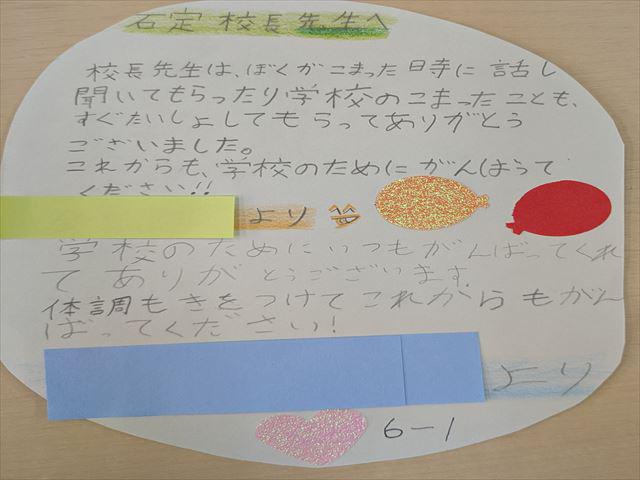 石定 校長先生へ
校長先生は、ぼくがこまった時に 話し
聞いてもらったり学校のこまったことも、
すぐたいしょしてもらってありがとう
ございました。
これからも、学校のために がんばって
ください!!
より
学校のためにいつもがんばってくれ
てありがとうございます。
体調もきをつけてこれからもがん
ばってください!
より
6-1